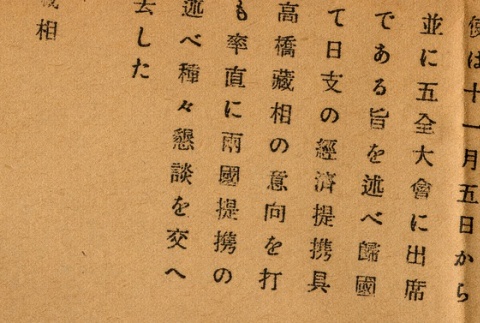 使は十一月五日から
並に五全大會に出席
である旨を述べ歸國
て日支の經濟提携具
高橋藏相の意向を打
も率直に兩國提携の
述べ種々懇談を交へ
去した
相